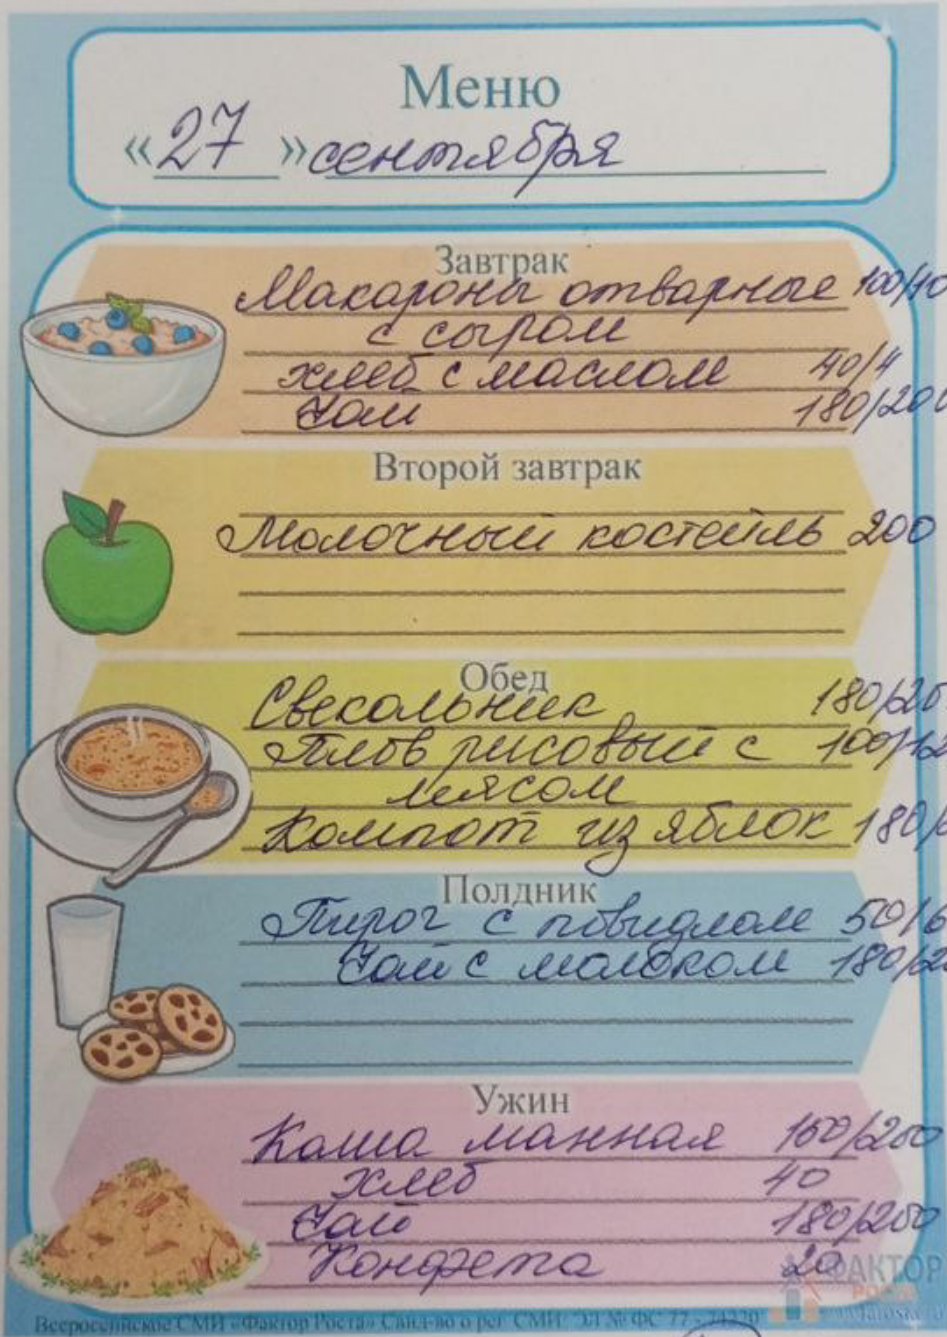 Меню
«27» сентября
Завтрак
Макароны отварные 100/10
с сыром
хлеб с маслом 40/4
Чай 180/200
Второй завтрак
Молочный костейль 200
Обед
Свекольник 180/20
Плов рисовый с 100/12
мясом
Компот из яблок 180/
Полдник
Пирог с повидлом 50/6
Чай с молоком 180/2
Ужин
Каша манная 160/200
хлеб 40
Чай 180/200
Конфета 20
ФАКТОР
РОСТА
Всероссийское СМИ «Фактор Роста» Свид-во о рег. СМИ: ЭЛ № ФС 77 - 74220